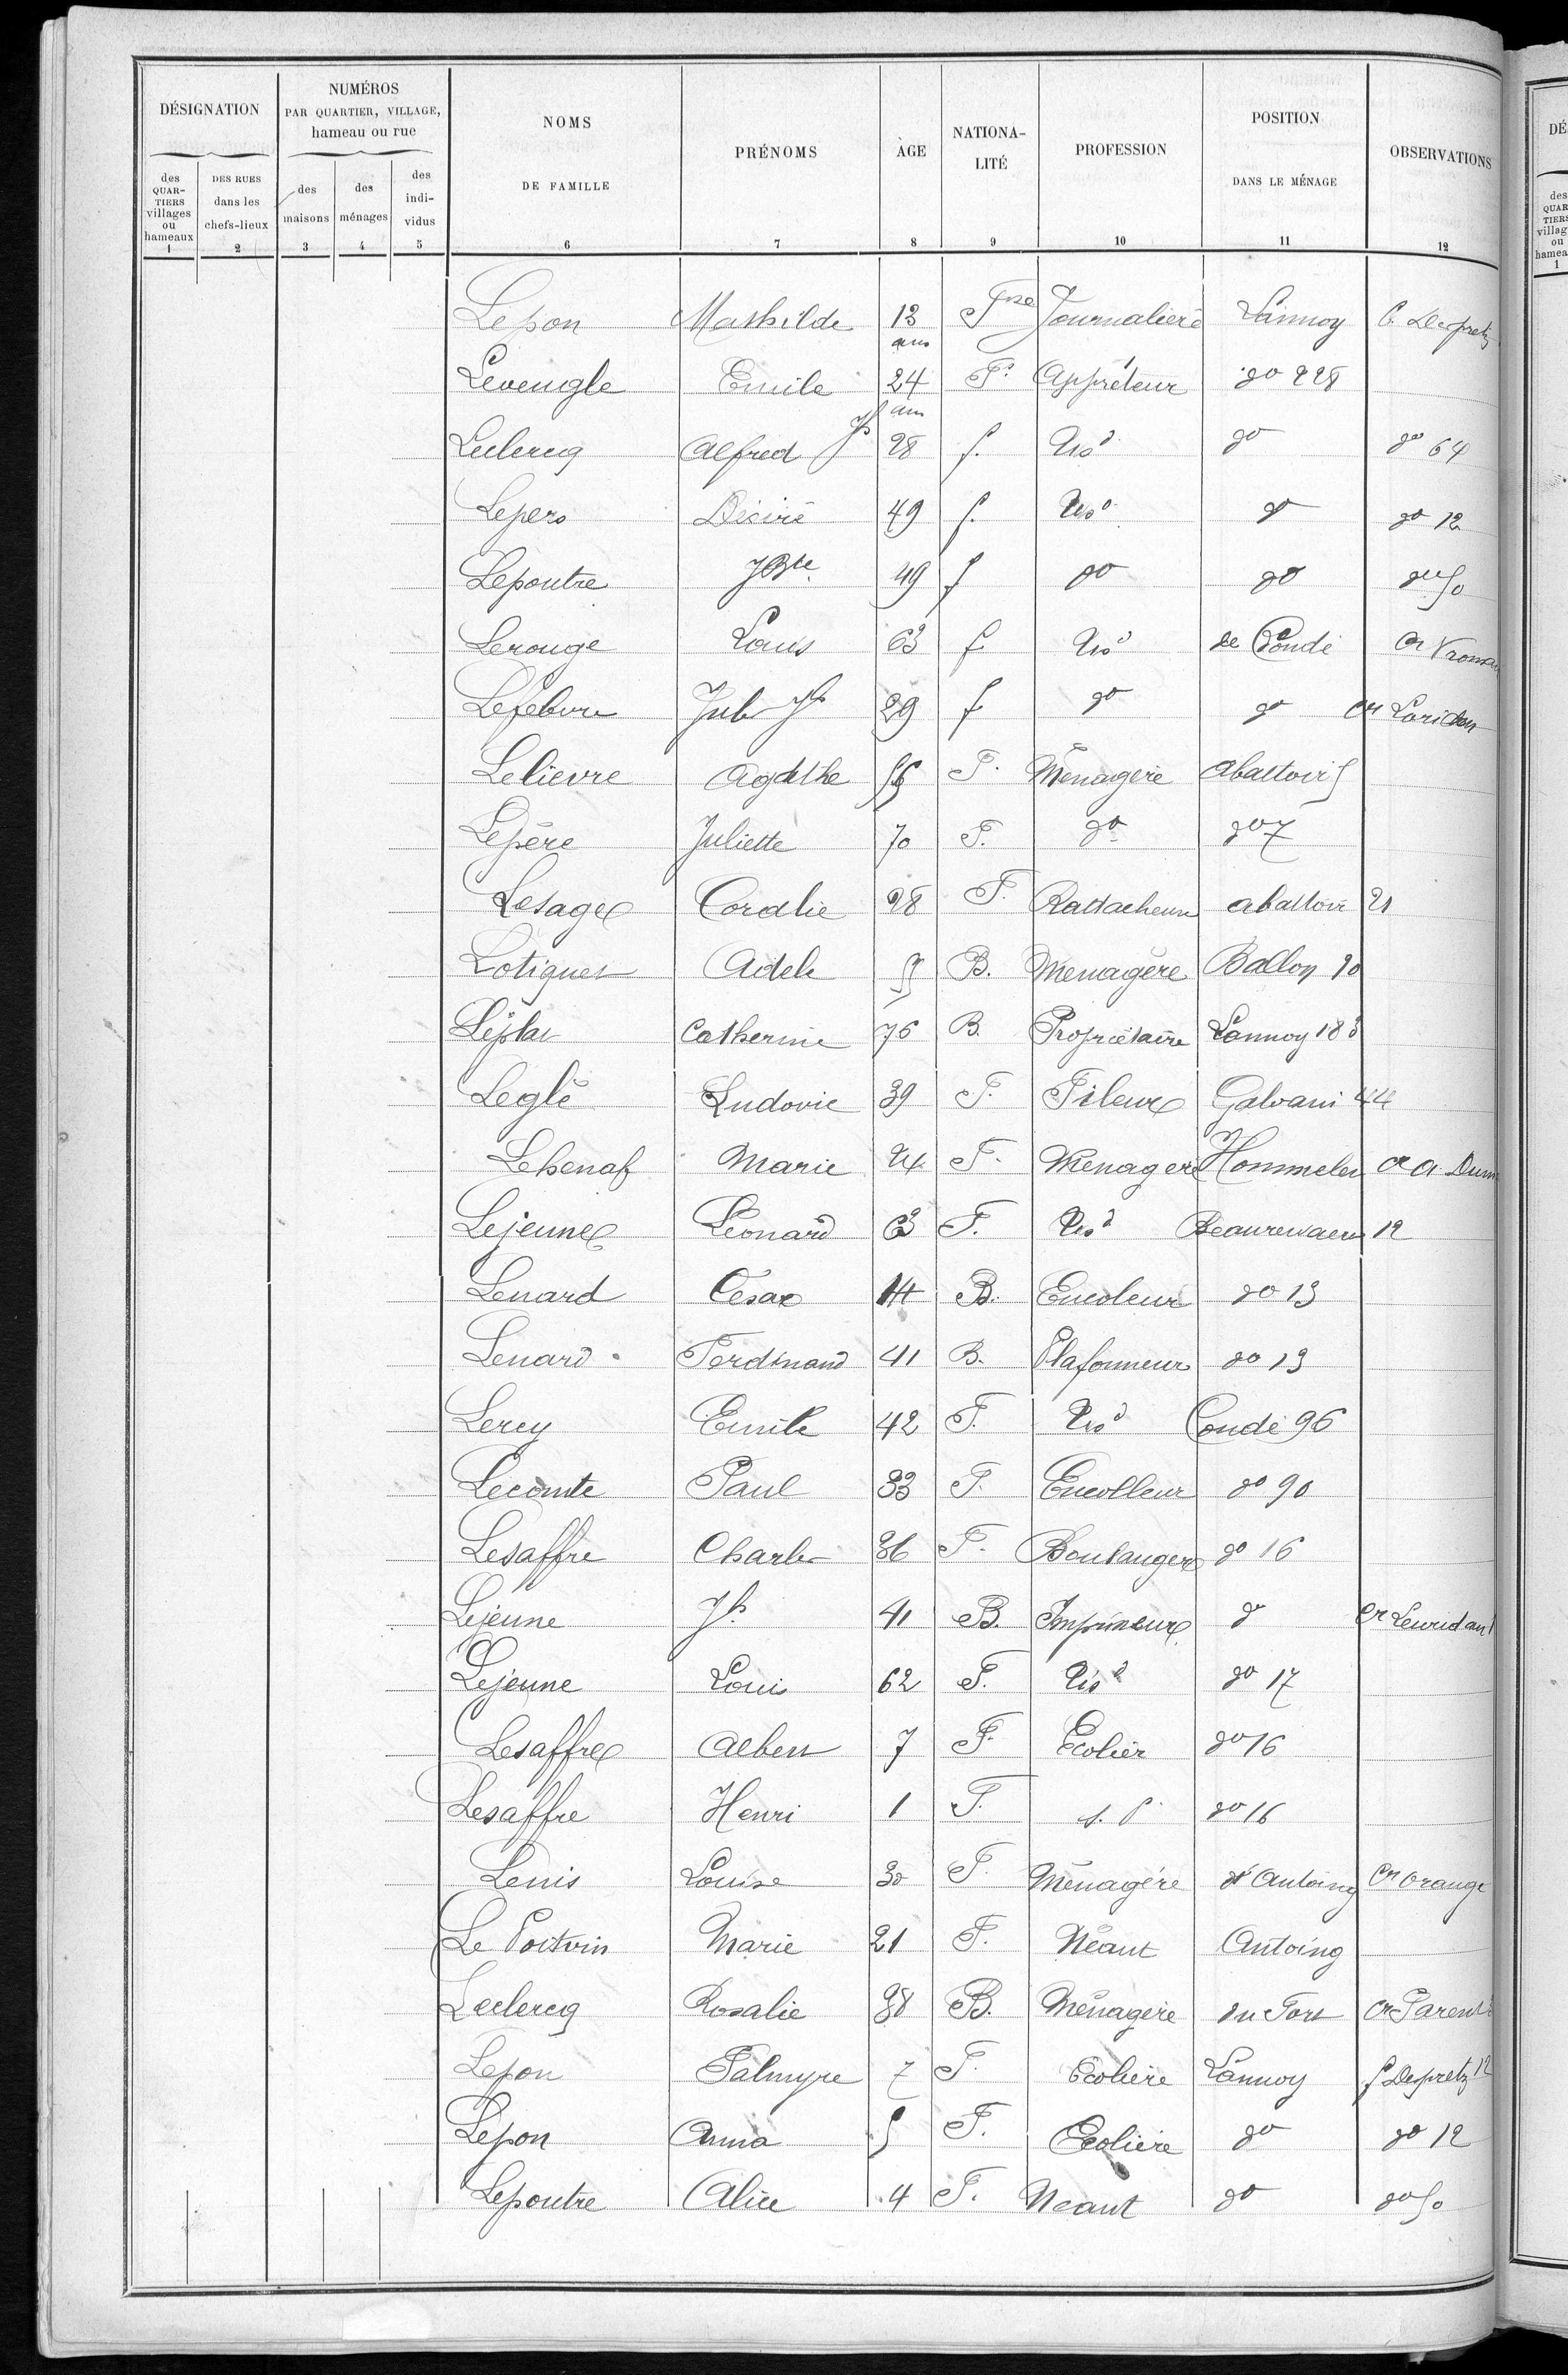 DÉSIGNATION
NUMÉROS
PAR QUARTIER, VILLAGE,
hameau ou rue
NOMS
DE FAMILLE
PRÉNOMS
ÀGE
NATIONA-
LITÉ
PROFESSION
POSITION
DANS LE MÉNAGE
OBSERVATIONS
des
QUAR-
TIERS
villages
ou
hameaux
DES RUES
dans les
chefs-lieux
des
maisons
des
ménages
des
indi-
vidus
1 2 3 4 5 6 7 8 9 10 11 12
Lepon Mathilde 13 ans Fse Journalière Lannoy C. Despretz
Leveugle Emile 24 ans F. Appréteur do 228
Leclercq Alfred Jh 28 f. Tisd do do 64
Lepers Désiré 49 f. Tisd do do 12
Lepoutre JBte 49 f do do do 50
Lerouge Louis 63 f Tisd de Condé
Lefebvre Jules Jh 29 f do do
Lelievre Agathe F. Ménagère Abattoir 5
Lepère Juliette 70 F. do do 7
Lesage Coralie 28 F. Rattacheuse abattoir 21
Adele B. Menagère Ballon
Catherine 76 B. Propriétaire Lannoy 183
Leglé Ludovic 39 F. Fileur Galvani 44
Lehenaf Marie F. Menagère
Lejeune Léonard 63 F. Tisd 12
Lenard César 14 B. Encoleur do 13
Lenard Ferdinand 41 B. Plafonneur do 13
Leroy Emile 42 F. Tisd Condé 96
Lecomte Paul 33 F. Encolleur do 90
Lesaffre Charles 36 F. Boulanger do 16
Lejeune Jh 41 B. Imprimeur do Cr Leuridant
Lejeune Louis 62 F. Tisd do 17
Lesaffre Albert 7 F. Ecolier do 16
Lesaffre Henri 1 F. s. P do 16
Lenis Louise 30 F. Ménagère d'Antoing Cr Orange
Le Poitvin Marie 21 F. Néant Antoing
Leclercq Rosalie 38 B. Ménagère du Fort Cr Parent
Lepon Palmyre 7 F. Ecolière Lannoy C Despretz 12
Lepon Anna 5 F. Ecolière do do 12
Lepoutre Alice 4 F. Neant do do 50